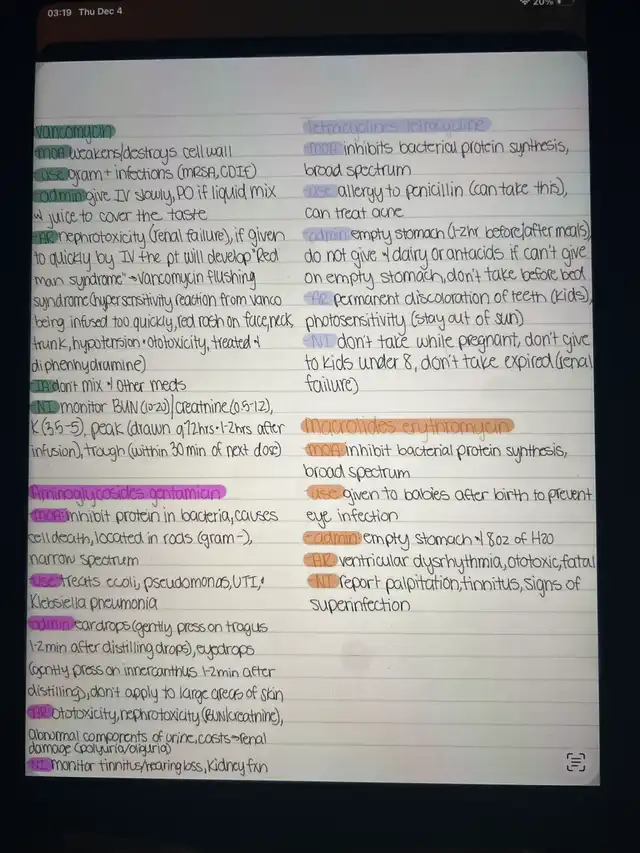 03:19 Thu Dec 4
20%
Vancomycin
MOA weakens/destroys cell wall
use gram+ infections (MRSA, CDIF)
admin give IV slowly, PO if liquid mix
w juice to cover the taste
AR nephrotoxicity (renal failure), if given
to quickly by IV the pt will develop "Red
man syndrome" → vancomycin flushing
syndrome (hypersensitivity reaction from vanco
being infused too quickly, red rash on face, neck,
trunk, hypotension · ototoxicity, treated w
diphenhydramine)
don't mix w other meds
NI monitor BUN (10-20)/creatnine (0.5-1.2),
K (3.5-5), peak (drawn q72hrs · 1-2hrs after
infusion), trough (within 30 min of next dose)
Aminoglycosides gentamian
MOA inhibit protein in bacteria, causes
cell death, located in rods (gram-),
narrow spectrum
use treats ecoli, pseudomonas, UTI,
Klebsiella pneumonia
admin eardrops (gently press on tragus
1-2min after distilling drops), eyedrops
(gently press on inner canthus 1-2min after
distilling), don't apply to large areas of skin
AR ototoxicity, nephrotoxicity (BUN/creatnine),
abnormal components of urine, casts → renal
damage (polyuria/oliguria)
NI monitor tinnitus/hearing loss, kidney fxn
Tetracyclines tetracycline
MOA inhibits bacterial protein synthesis,
broad spectrum
use allergy to penicillin (can take this),
can treat acne
admin empty stomach (1-2hr before/after meals),
do not give w dairy or antacids if can't give
on empty stomach, don't take before bed
AR permanent discoloration of teeth (kids),
photosensitivity (stay out of sun)
NI don't take while pregnant, don't give
to kids under 8, don't take expired (renal
failure)
Macrolides erythromycin
MOA inhibit bacterial protein synthesis,
broad spectrum
use given to babies after birth to prevent
eye infection
admin empty stomach w 8oz of H2O
AR ventricular dysrhythmia, ototoxic, fatal
NI report palpitation, tinnitus, signs of
superinfection